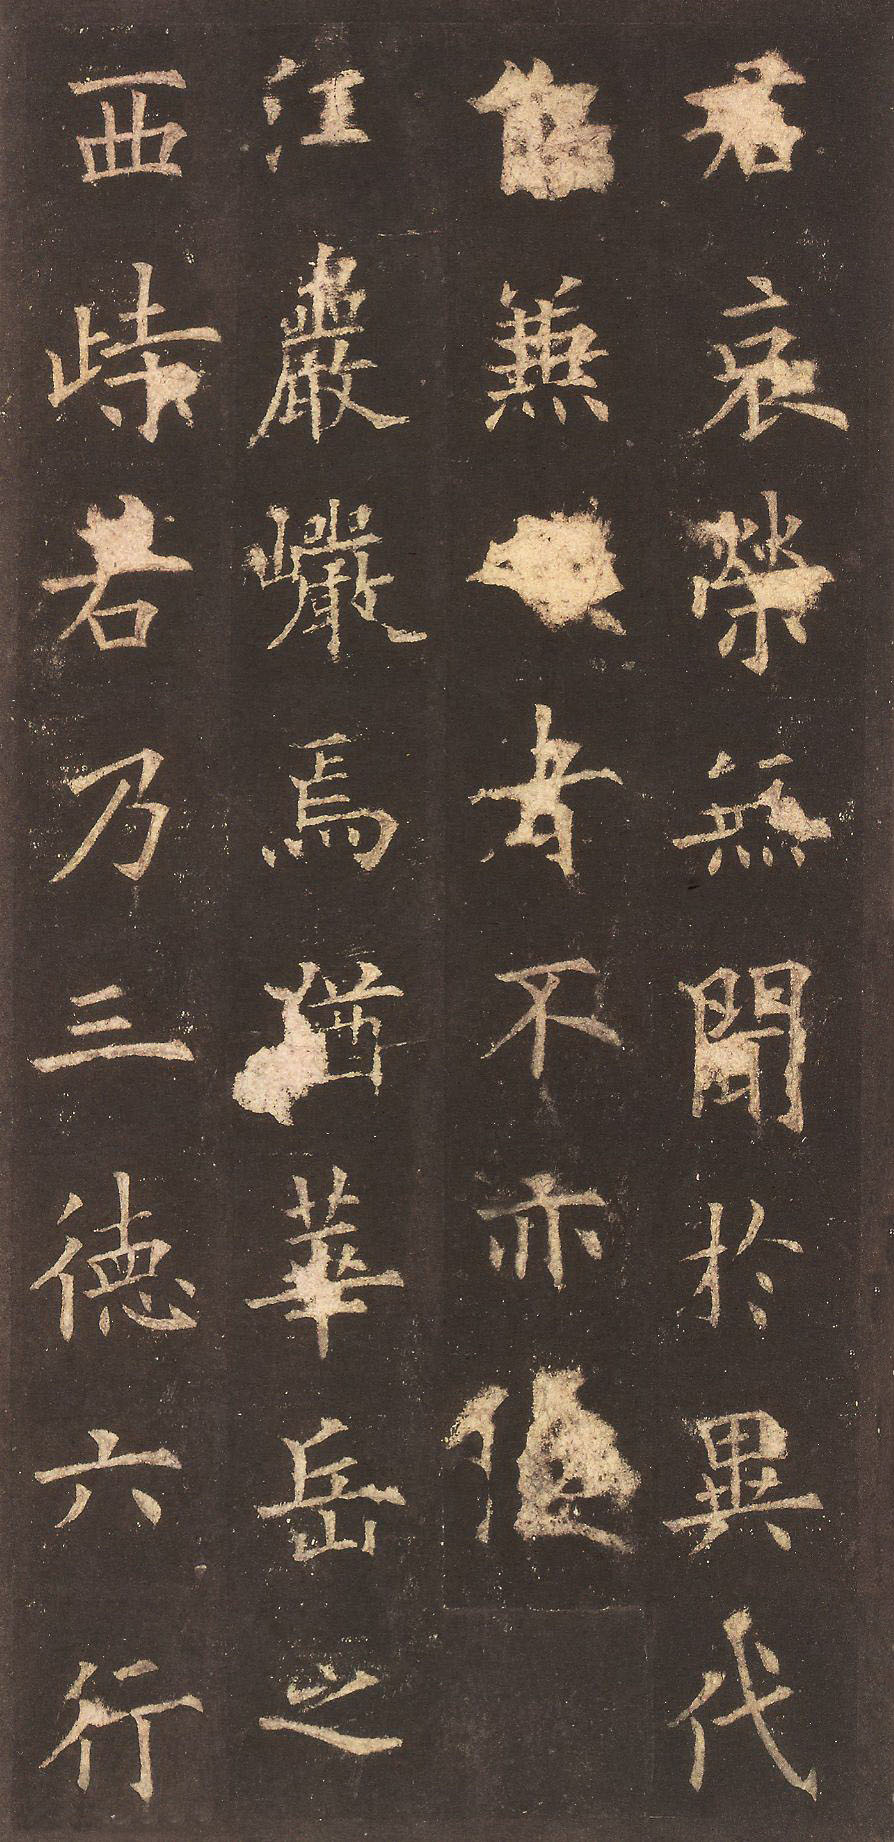 哀榮無聞於異代
兼者不亦
巖巗焉猶華岳之
西峙若乃三徳六行